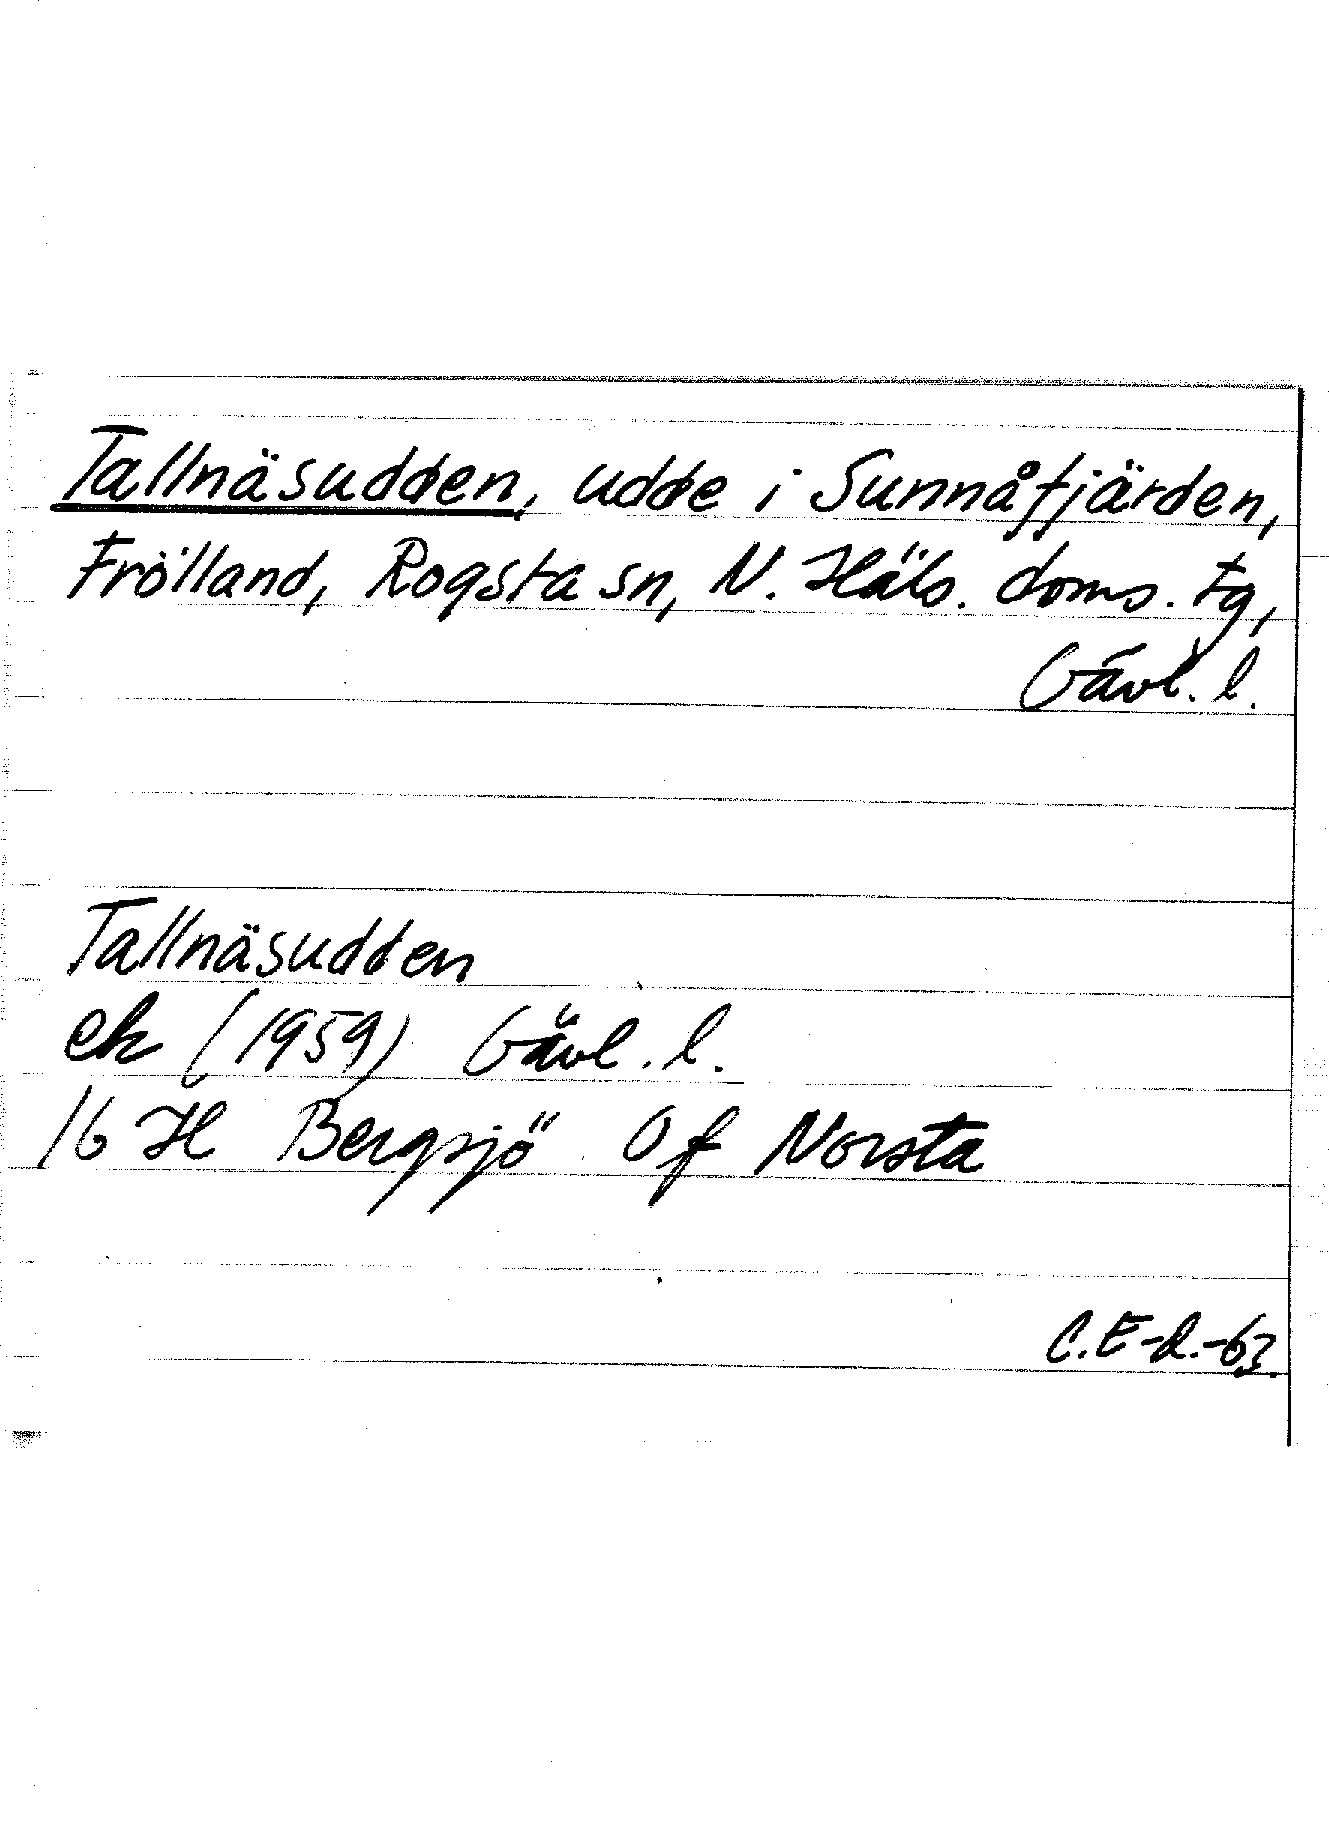 Tallnäsudden, udde i Sunnåfjärden,
Frölland, Rogsta sn, N. Häls. doms. tg,
Gävl. l.
Tallnäsudden
ek (1959) Gävl. l.
16 H Bergsjö 0 f Norsta
C. E-d.-63.